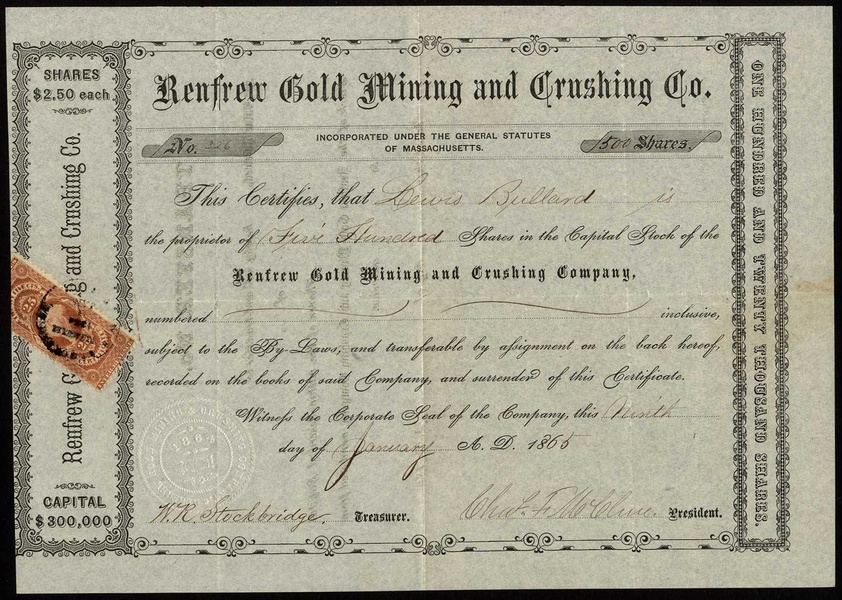 SHARES
$2.50 each
Renfrew Gold Mining and Crushing Co.
CAPITAL
$300,000
25
Renfrew Gold Mining and Crushing Co.
No. 326
INCORPORATED UNDER THE GENERAL STATUTES
OF MASSACHUSETTS.
500 Shares.
This Certifies, that Lewis Bullard is
the proprietor of Five Hundred Shares in the Capital Stock of the
Renfrew Gold Mining and Crushing Company,
numbered inclusive,
subject to the By-Laws, and transferable by assignment on the back hereof,
recorded on the books of said Company, and surrender of this Certificate.
Witness the Corporate Seal of the Company, this Ninth
day of January A. D. 1865
W. R. Stockbridge. Treasurer. Chas. F. McClure. President.
ONE HUNDRED AND TWENTY THOUSAND SHARES.